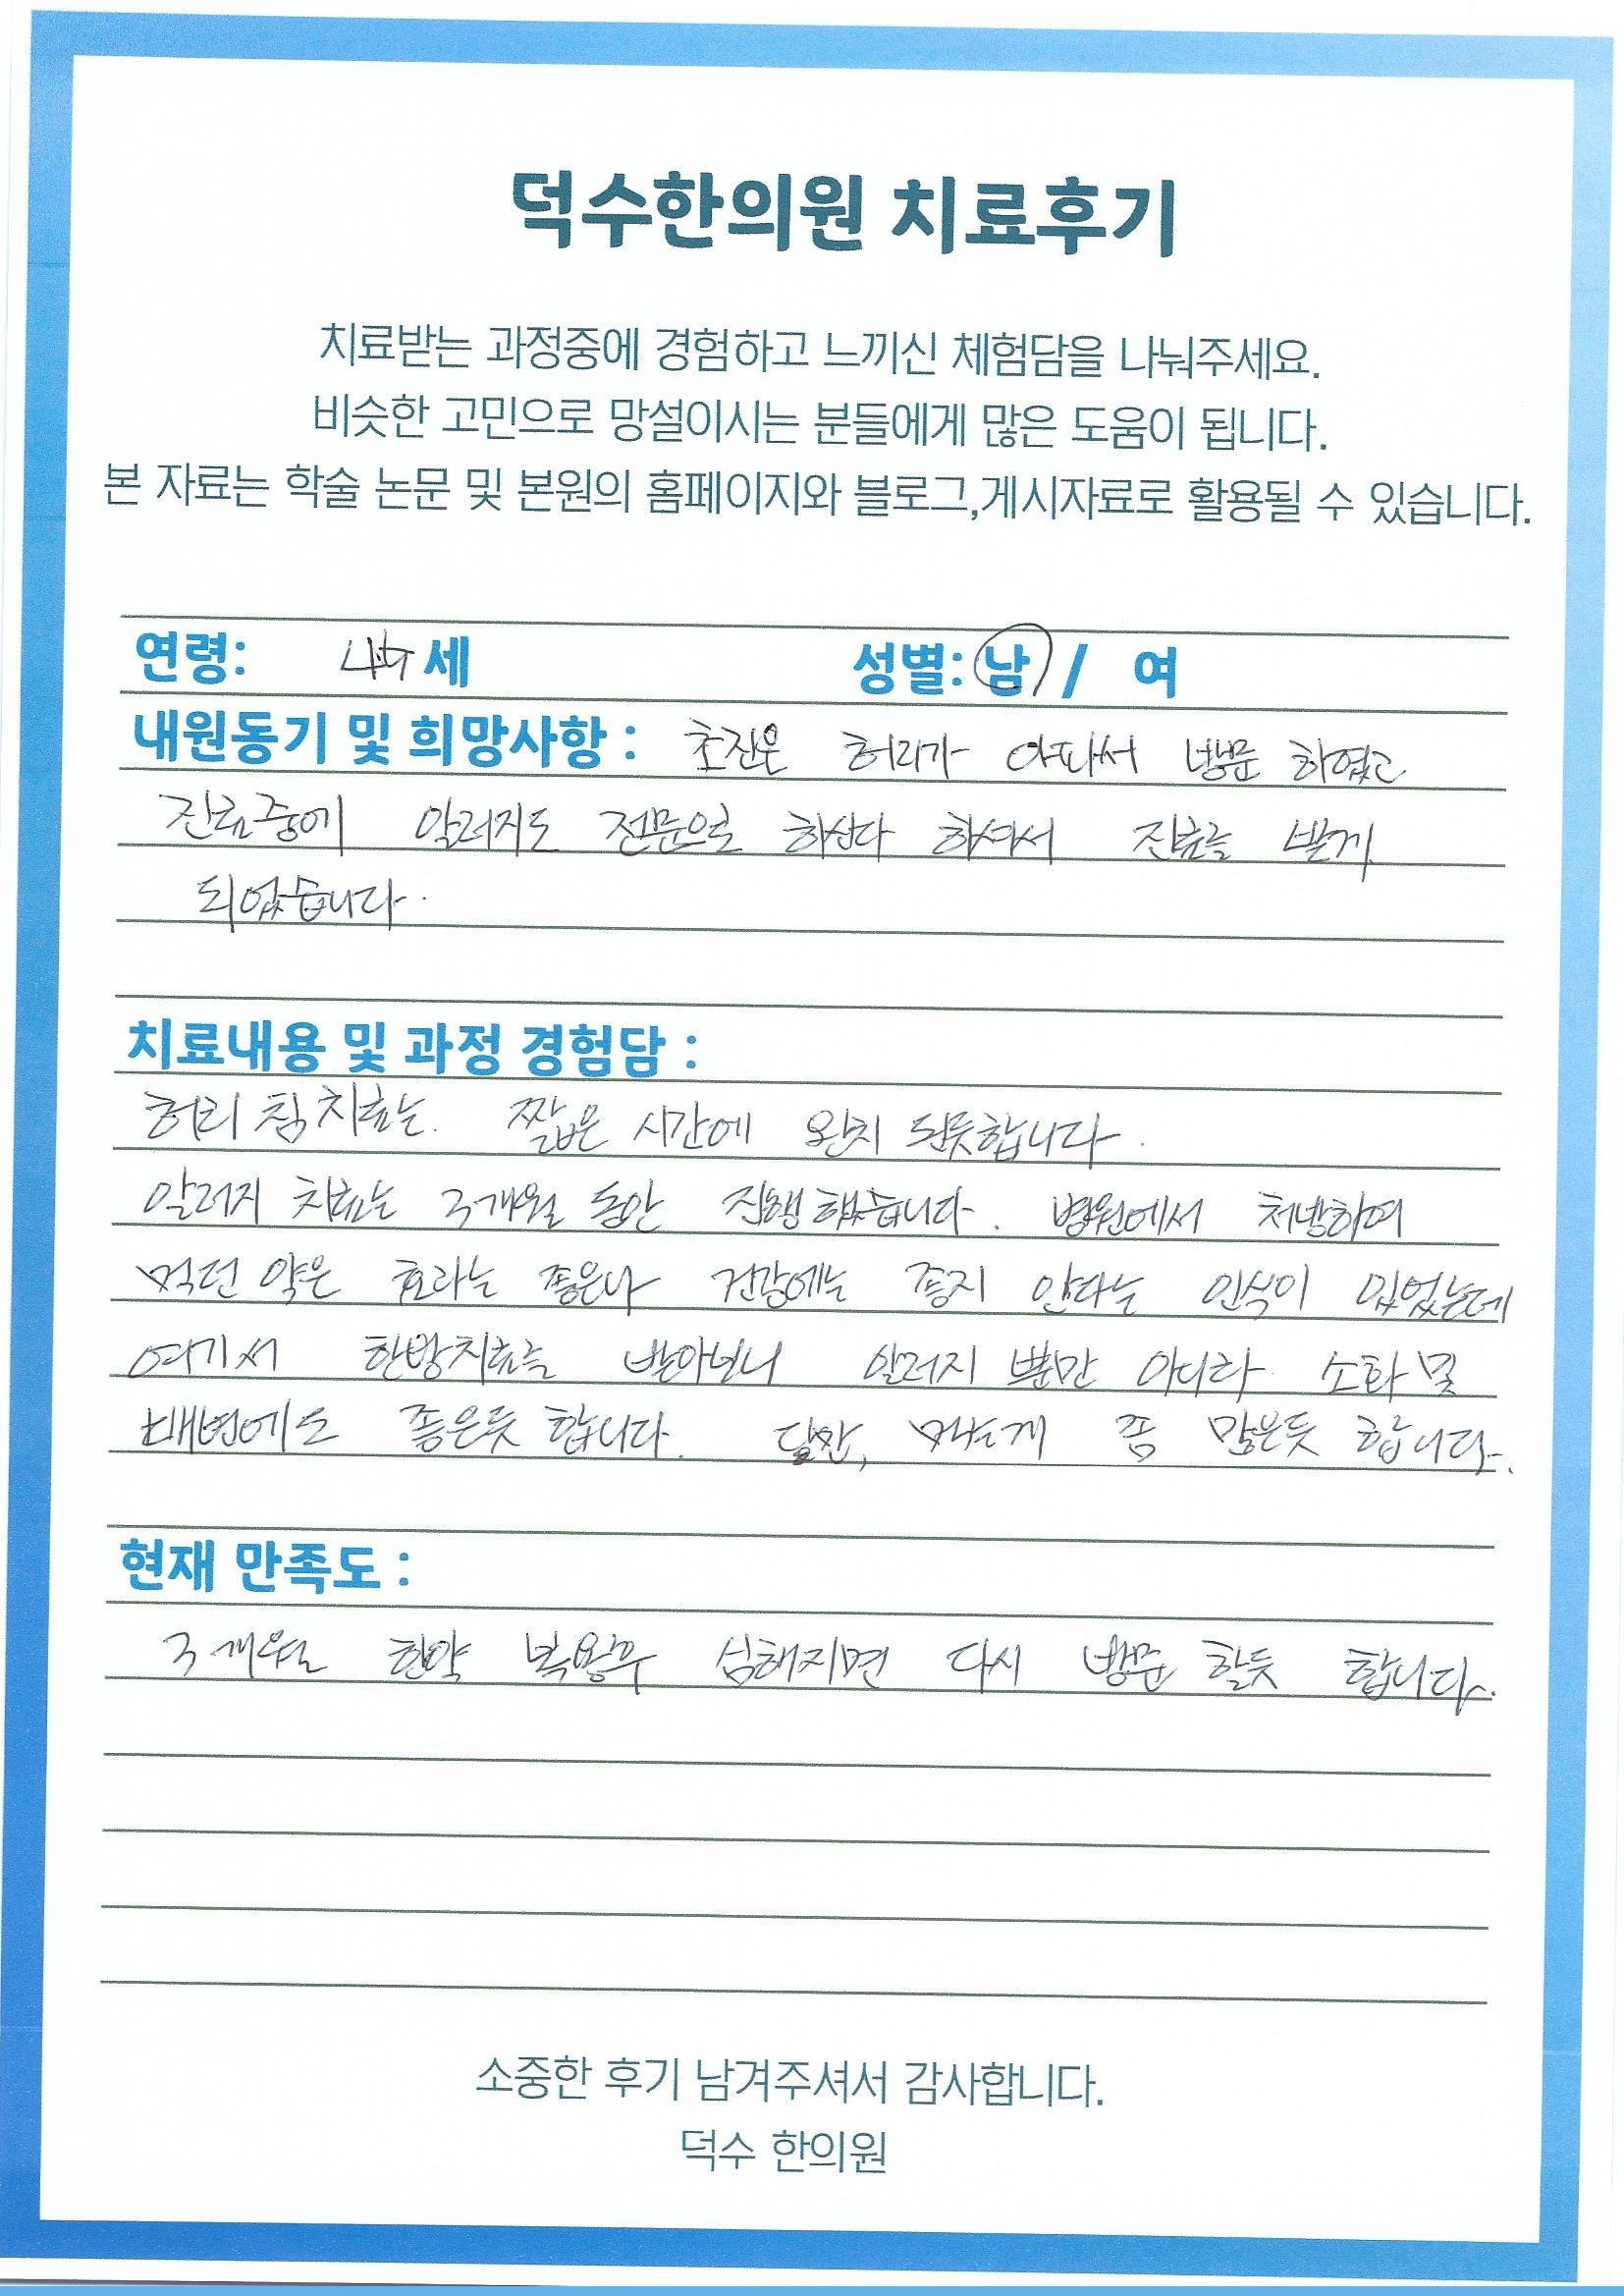 덕수한의원 치료후기
치료받는 과정중에 경험하고 느끼신 체험담을 나눠주세요.
비슷한 고민으로 망설이시는 분들에게 많은 도움이 됩니다.
본 자료는 학술 논문 및 본원의 홈페이지와 블로그,게시자료로 활용될 수 있습니다.
연령: 세 성별: 남 / 여
내원동기 및 희망사항 : 초진은 허리가 아파서 방문 하였고
진료중에 알러지도 전문으로 하신다 하셔서 진료를 받게
되었습니다.
치료내용 및 과정 경험담 :
허리 침치료는. 짧은 시간에 완치 된듯합니다.
알러지 치료는 3개월 동안 진행했습니다. 병원에서 처방하여
먹던 약은 효과는 좋으나 건강에는 좋지 안다는 인식이 있었는데
여기서 한방치료를 받아보니 알러지 뿐만 아니라 소화 및
배변에도 좋은듯 합니다. 단, 먹는게 좀 많은듯 합니다.
현재 만족도 :
3개월 한약 복용후 심해지면 다시 방문 할듯 합니다.
소중한 후기 남겨주셔서 감사합니다.
덕수 한의원